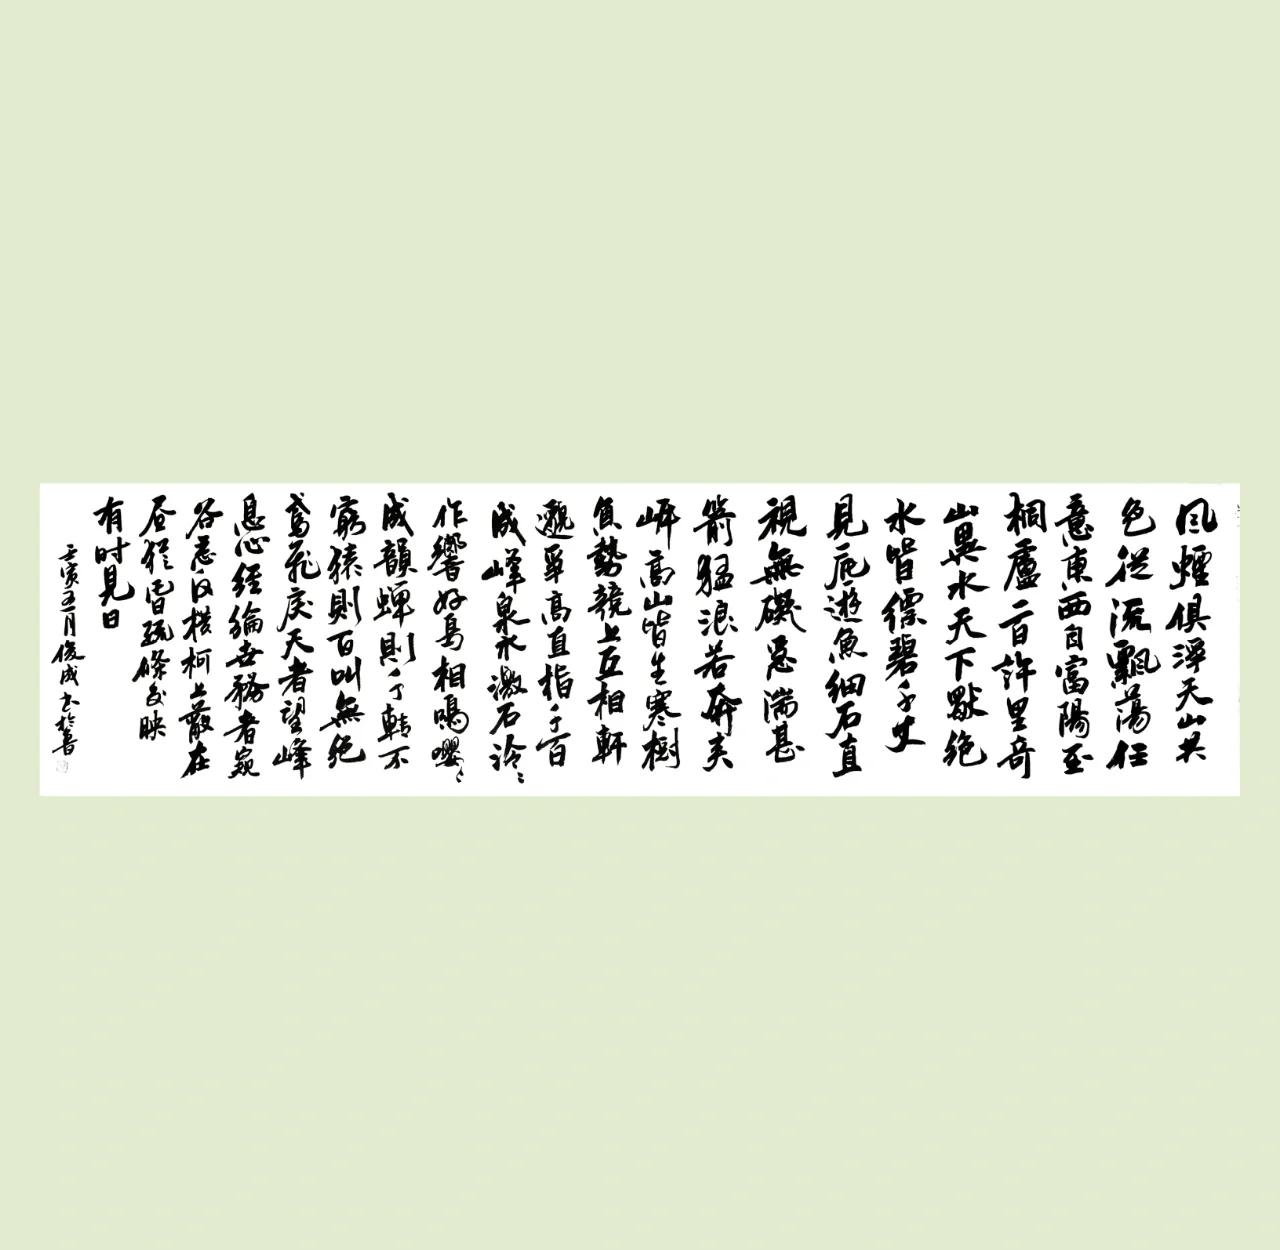 風煙俱淨天山共
色從流飄蕩任
意東西自富陽至
桐廬一百許里奇
山異水天下獨絕
水皆縹碧千丈
見底遊魚細石直
視無礙急湍甚
箭猛浪若奔夾
岸高山皆生寒樹
負勢競上互相軒
邈爭高直指千百
成峰泉水激石泠〻
作響好鳥相鳴嚶〻
成韻蟬則千轉不
窮猿則百叫無絕
鳶飛戾天者望峰
息心經綸世務者窺
谷忘反橫柯上蔽在
昼猶昏疏條交映
有时見日
壬寅五月俊成书於